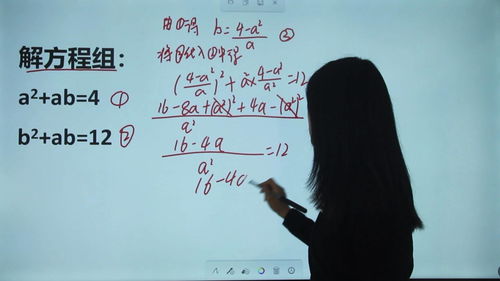 解方程组:
a²+ab=4 ①
b²+ab=12 ②
由①得 b=4-a²/a ③
将③代入②中得
(4-a²/a)²+a×4-a²/a=12
16-8a+(a²)²+4a-(a²)²
a²
16-4a
=12
a²
16-4a